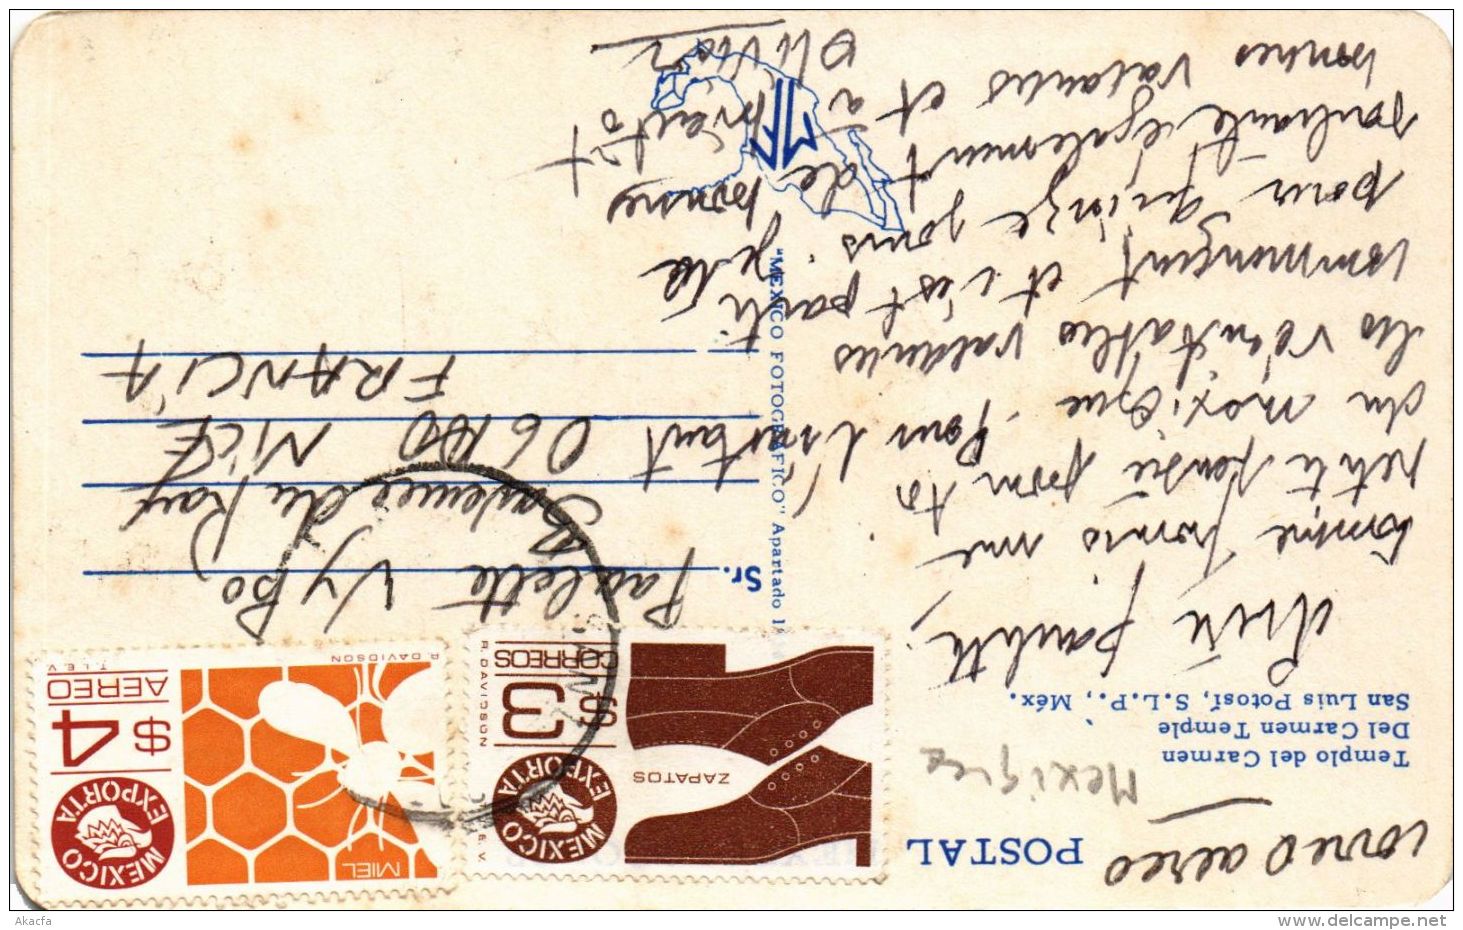 Correo aereo
POSTAL
Mexique
Templo del Carmen
Del Carmen Temple
San Luis Potosí, S.L.P., Méx.
Chère Paulette,
Comme promis une
petite pensée pour toi
du Mexique. Pour l'instant
les véritables vacances
commencent et c'est parti
pour quinze jours. Je te
souhaite également de bonnes
vacances et à bientôt
OLIVIER
"MEXICO FOTOGRAFICO" Apartado
MF
MEXICO EXPORTA
ZAPATOS
$3
CORREOS
R. DAVIDSON
T.I.E.V.
MEXICO EXPORTA
MIEL
$4
AEREO
R. DAVIDSON
T.I.E.V.
Sr. Paulette
Avenue du Ray
06100 NICE
FRANCIA
Akacfa
delcampe.net